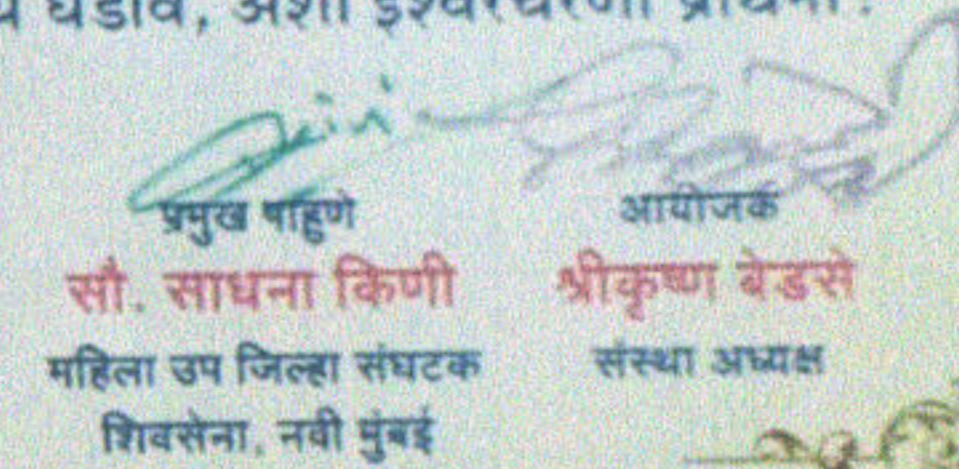 घडावे, अशी ईश्वरचरणी प्रार्थना!
प्रमुख पाहुणे
सौ. साधना किणी
महिला उप जिल्हा संघटक
शिवसेना, नवी मुंबई
आयोजक
श्रीकृष्ण बेडसे
संस्था अध्यक्ष